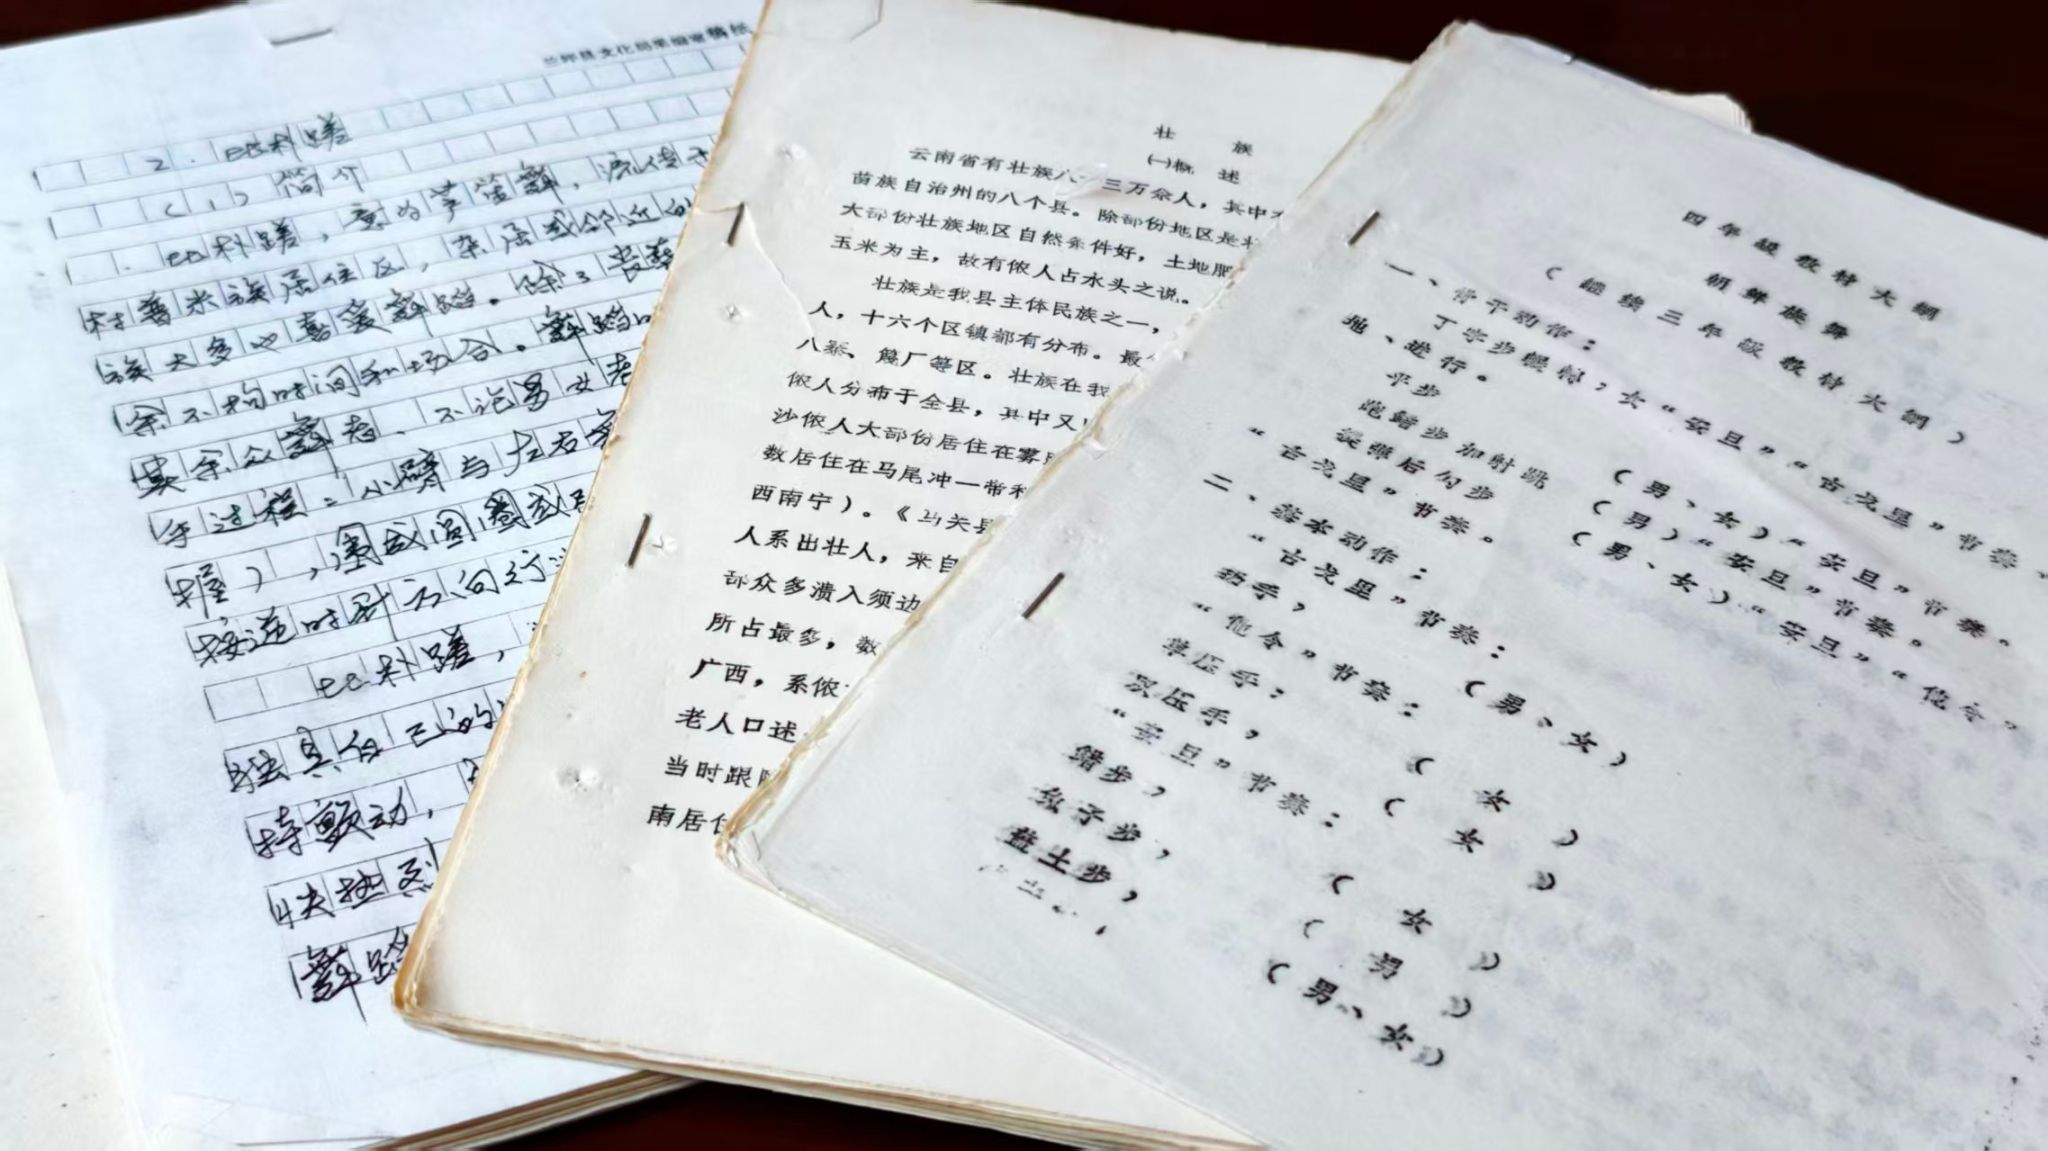 兰坪县文化局集成室稿纸
2. 比朴蹉
(1) 简介
比朴蹉，意为芦笙舞，流传于
村普米族居住区，杂居或邻近的
族大多也喜爱舞蹈。除了丧葬
余不拘时间和场合。舞蹈时
其余众舞者、不论男女老
手过程：小臂与左右
握），围成圆圈或
按逆时针方向行进
比朴蹉，
独具自己的
持颤动，
快热烈
舞蹈
壮 族
㈠概 述
云南省有壮族八 三万余人，其中
苗族自治州的八个县。除部份地区是
大部份壮族地区自然条件好，土地肥
玉米为主，故有侬人占水头之说。
壮族是我县主体民族之一，
人，十六个区镇都有分布。最
八寨、篾厂等区。壮族在我
侬人分布于全县，其中又
沙侬人大部份居住在雾
数居住在马尾冲一带和
西南宁）。《马关县
人系出壮人，来自
部众多溃入须边
所占最多，数
广西，系侬
老人口述
当时跟随
南居住
四年级教材大纲
朝鲜族舞
（继续三年级教材大纲）
一、骨干动作：
丁字步蹍转，女“安旦”“古戈里”节奏，
地、进行。
平步 （男、女）“安旦”节奏。
跑踏步加射跳 （男）“安旦”节奏。
碇弹后勾步 （男、女）“安旦”“他令”
“古戈里”节奏。
二、基本动作：
“古戈里”节奏：
扬手， （男、女）
“他令”节奏：
单压手： （女）
双压手， （女）
“安旦”节奏：
踏步， （女）
兔子步， （男）
垫土步， （男、女）